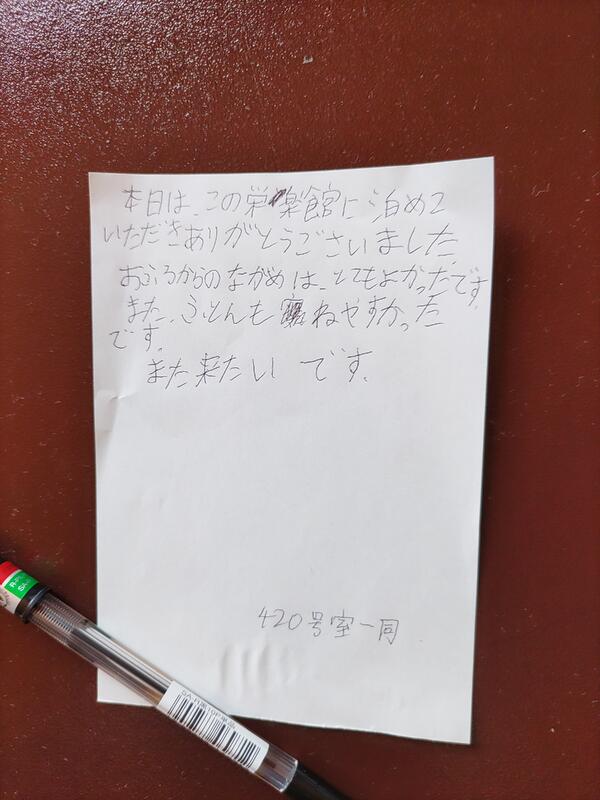 本日は、この栄楽館に泊めて
いただきありがとうございました。
おふろからのながめは、とてもよかったです。
また、ふとんも ねやすかった
です。
また来たい です。
420号室一同